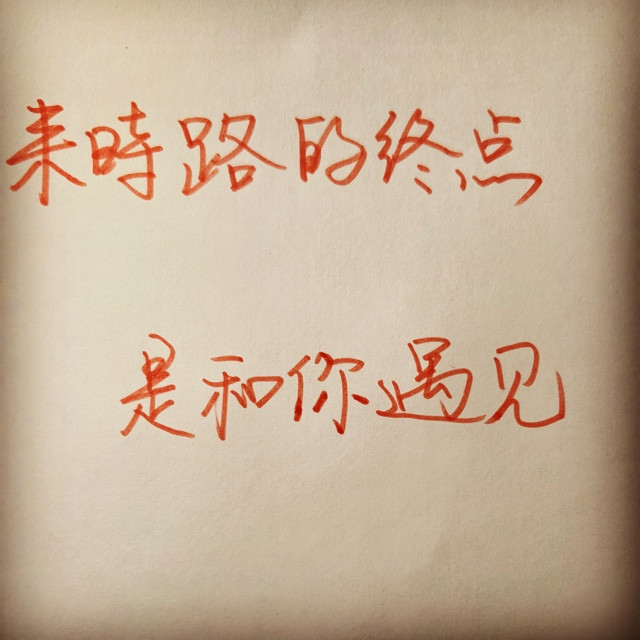 来時路的终点
是和你遇见